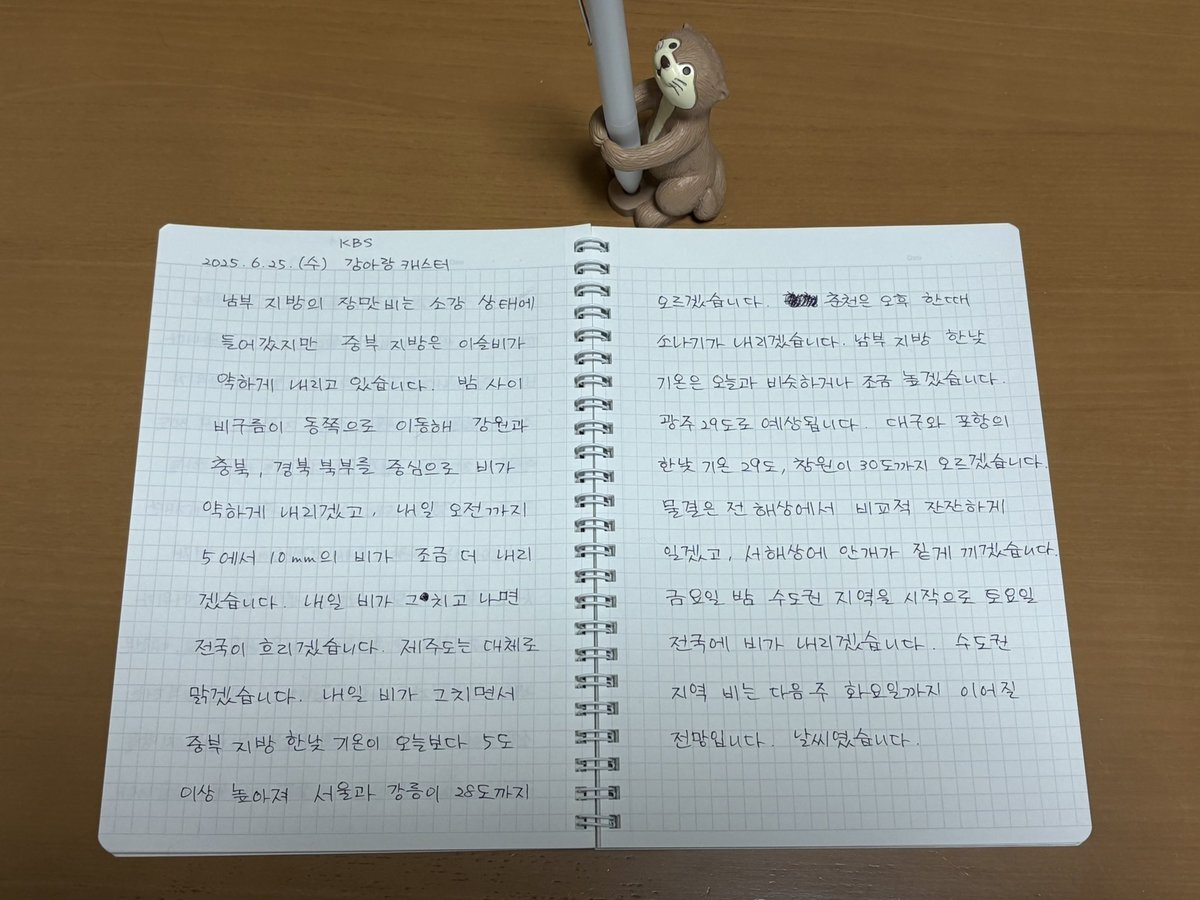 KBS
2025.6.25.(수) 강아랑 캐스터
남부 지방의 장맛비는 소강 상태에
들어갔지만 중부 지방은 이슬비가
약하게 내리고 있습니다. 밤 사이
비구름이 동쪽으로 이동해 강원과
충북, 경북 북부를 중심으로 비가
약하게 내리겠고, 내일 오전까지
5에서 10mm의 비가 조금 더 내리
겠습니다. 내일 비가 그치고 나면
전국이 흐리겠습니다. 제주도는 대체로
맑겠습니다. 내일 비가 그치면서
중부 지방 한낮 기온이 오늘보다 5도
이상 높아져 서울과 강릉이 28도까지
오르겠습니다. 춘천은 오후 한때
소나기가 내리겠습니다. 남부 지방 한낮
기온은 오늘과 비슷하거나 조금 높겠습니다.
광주 29도로 예상됩니다. 대구와 포항의
한낮 기온 29도, 창원이 30도까지 오르겠습니다.
물결은 전 해상에서 비교적 잔잔하게
일겠고, 서해상에 안개가 짙게 끼겠습니다.
금요일 밤 수도권 지역을 시작으로 토요일
전국에 비가 내리겠습니다. 수도권
지역 비는 다음 주 화요일까지 이어질
전망입니다. 날씨였습니다.